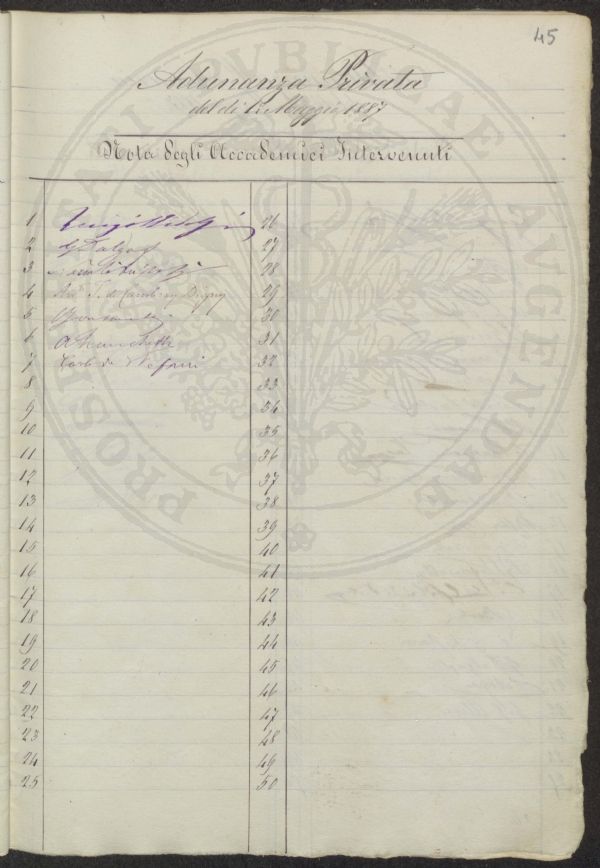 45
Adunanza Privata
del dì 1º Maggio 1887
Nota degli Accademici Intervenuti
1
2
3
4 di Cambray Digny
5
6
7 Carlo de Stefani
8
9
10
11
12
13
14
15
16
17
18
19
20
21
22
23
24
25
26
27
28
29
30
31
32
33
34
35
36
37
38
39
40
41
42
43
44
45
46
47
48
49
50
PROSPERITATI PUBLICAE AUGENDAE